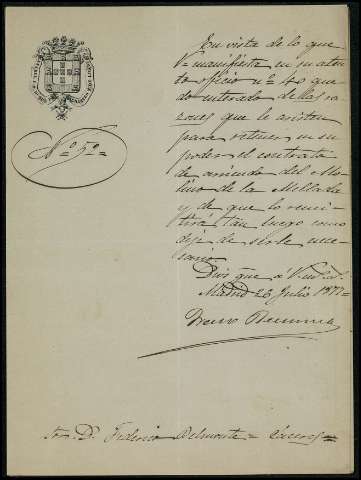 En vista de lo que
V. manifiesta en su aten
to oficio nº 40 que
do enterado de las ra
zones que le asisten
para retener en su
poder el contrato
de arriendo del Mo
lino de la Mellada
y de que lo remi
tirá tan luego como
deje de serle nece
sario.
Nº 52=
Dios gue. á V. m. a.
Madrid 26 Julio 1877=
Sr. D. Federico Belmonte = Cáceres=